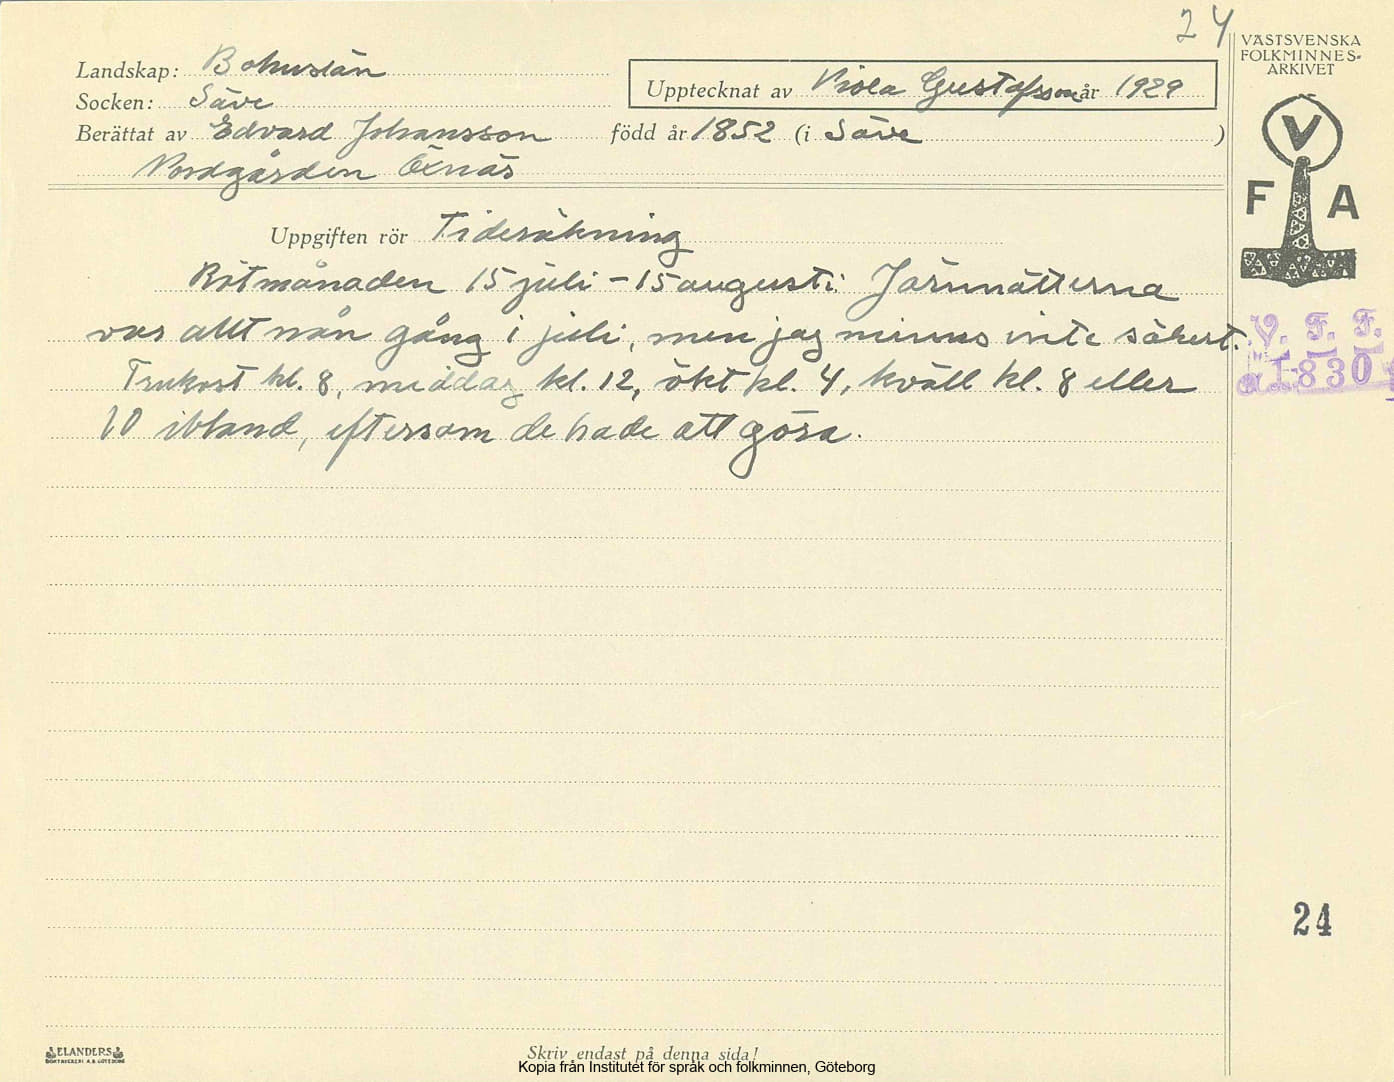 24
VÄSTSVENSKA
FOLKMINNES-
ARKIVET
Landskap: Bohuslän
Socken: Säve
Upptecknat av Viola Gustafsson år 1929
Berättat av Edvard Johansson född år 1852 (i Säve )
Nordgården Öxnäs
V
F A
Uppgiften rör Tideräkning
Rötmånaden 15 juli - 15 augusti. Järnnätterna
var allt nån gång i juli, men jag minns inte säkert.
Frukost kl. 8, middag kl. 12, ökt kl. 4, kväll kl. 8 eller
10 ibland, eftersom de hade att göra.
V. F. F.
1830
24
ELANDERS
BOKTRYCKERI A.B. GÖTEBORG
Skriv endast på denna sida!
Kopia från Institutet för språk och folkminnen, Göteborg